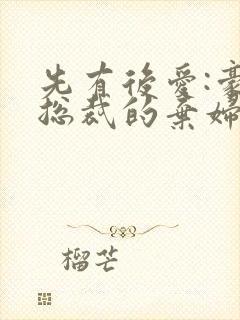 先有後愛:豪
総裁的棄婦
榴芒